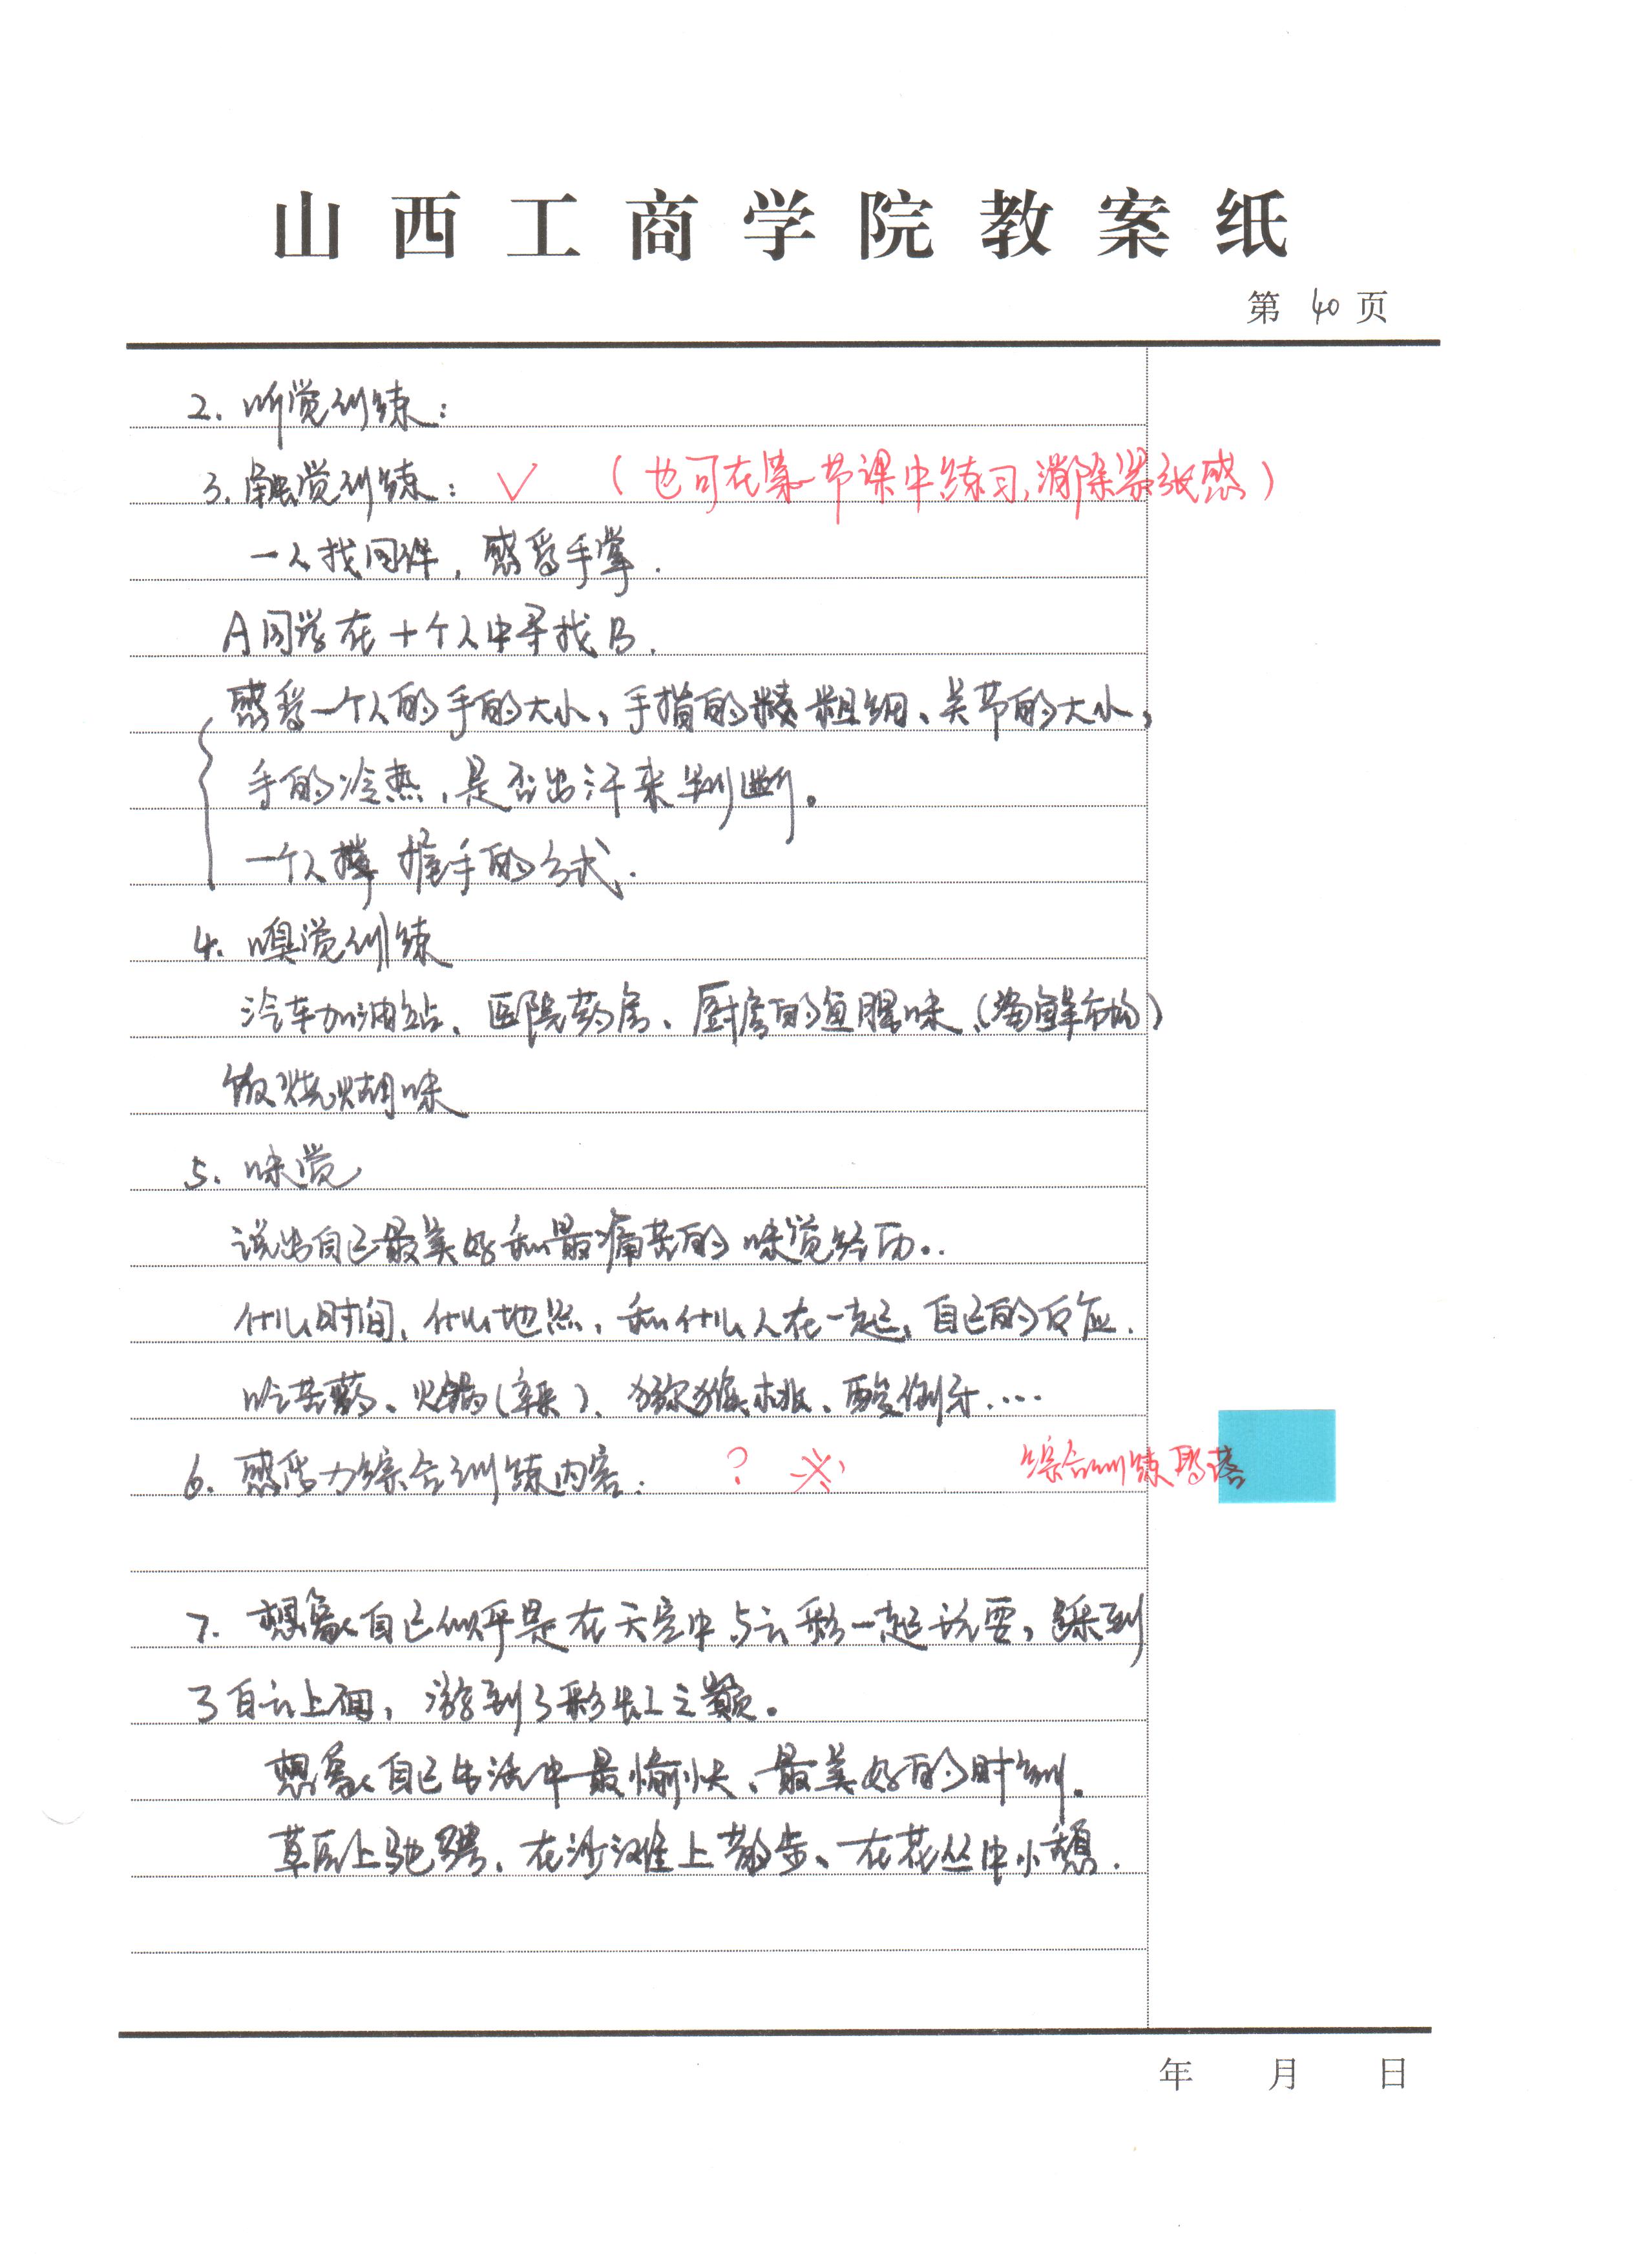 山西工商学院教案纸
第 40 页
2. 听觉训练：
3. 触觉训练： ✓ （也可在第一节课中练习，消除紧张感）
一人找同伴，感受手掌.
A同学在十个人中寻找B.
感受一个人的手的大小，手指的粗细、关节的大小，
手的冷热，是否出汗来判断。
一个人握手的方式.
4. 嗅觉训练
汽车加油站、医院药房、厨房的鱼腥味、（海鲜市场）
饭烧糊味
5. 味觉
说出自己最美好和最痛苦的味觉经历..
什么时间、什么地点，和什么人在一起，自己的反应.
吃苦药、火锅（辣）、猕猴桃、酸倒牙....
6. 感受力综合训练内容： ? ※ 综合训练
7. 想象自己似乎是在天空中与云彩一起玩耍，踩到
了白云上面，游到了彩虹之巅。
想象自己生活中最愉快、最美好的时刻。
草原上驰骋、在沙滩上散步、在花丛中小憩.
年 月 日